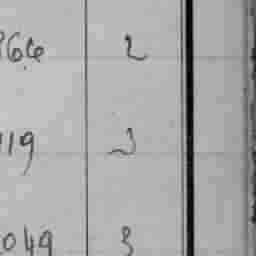 866 2
119 3
049 3